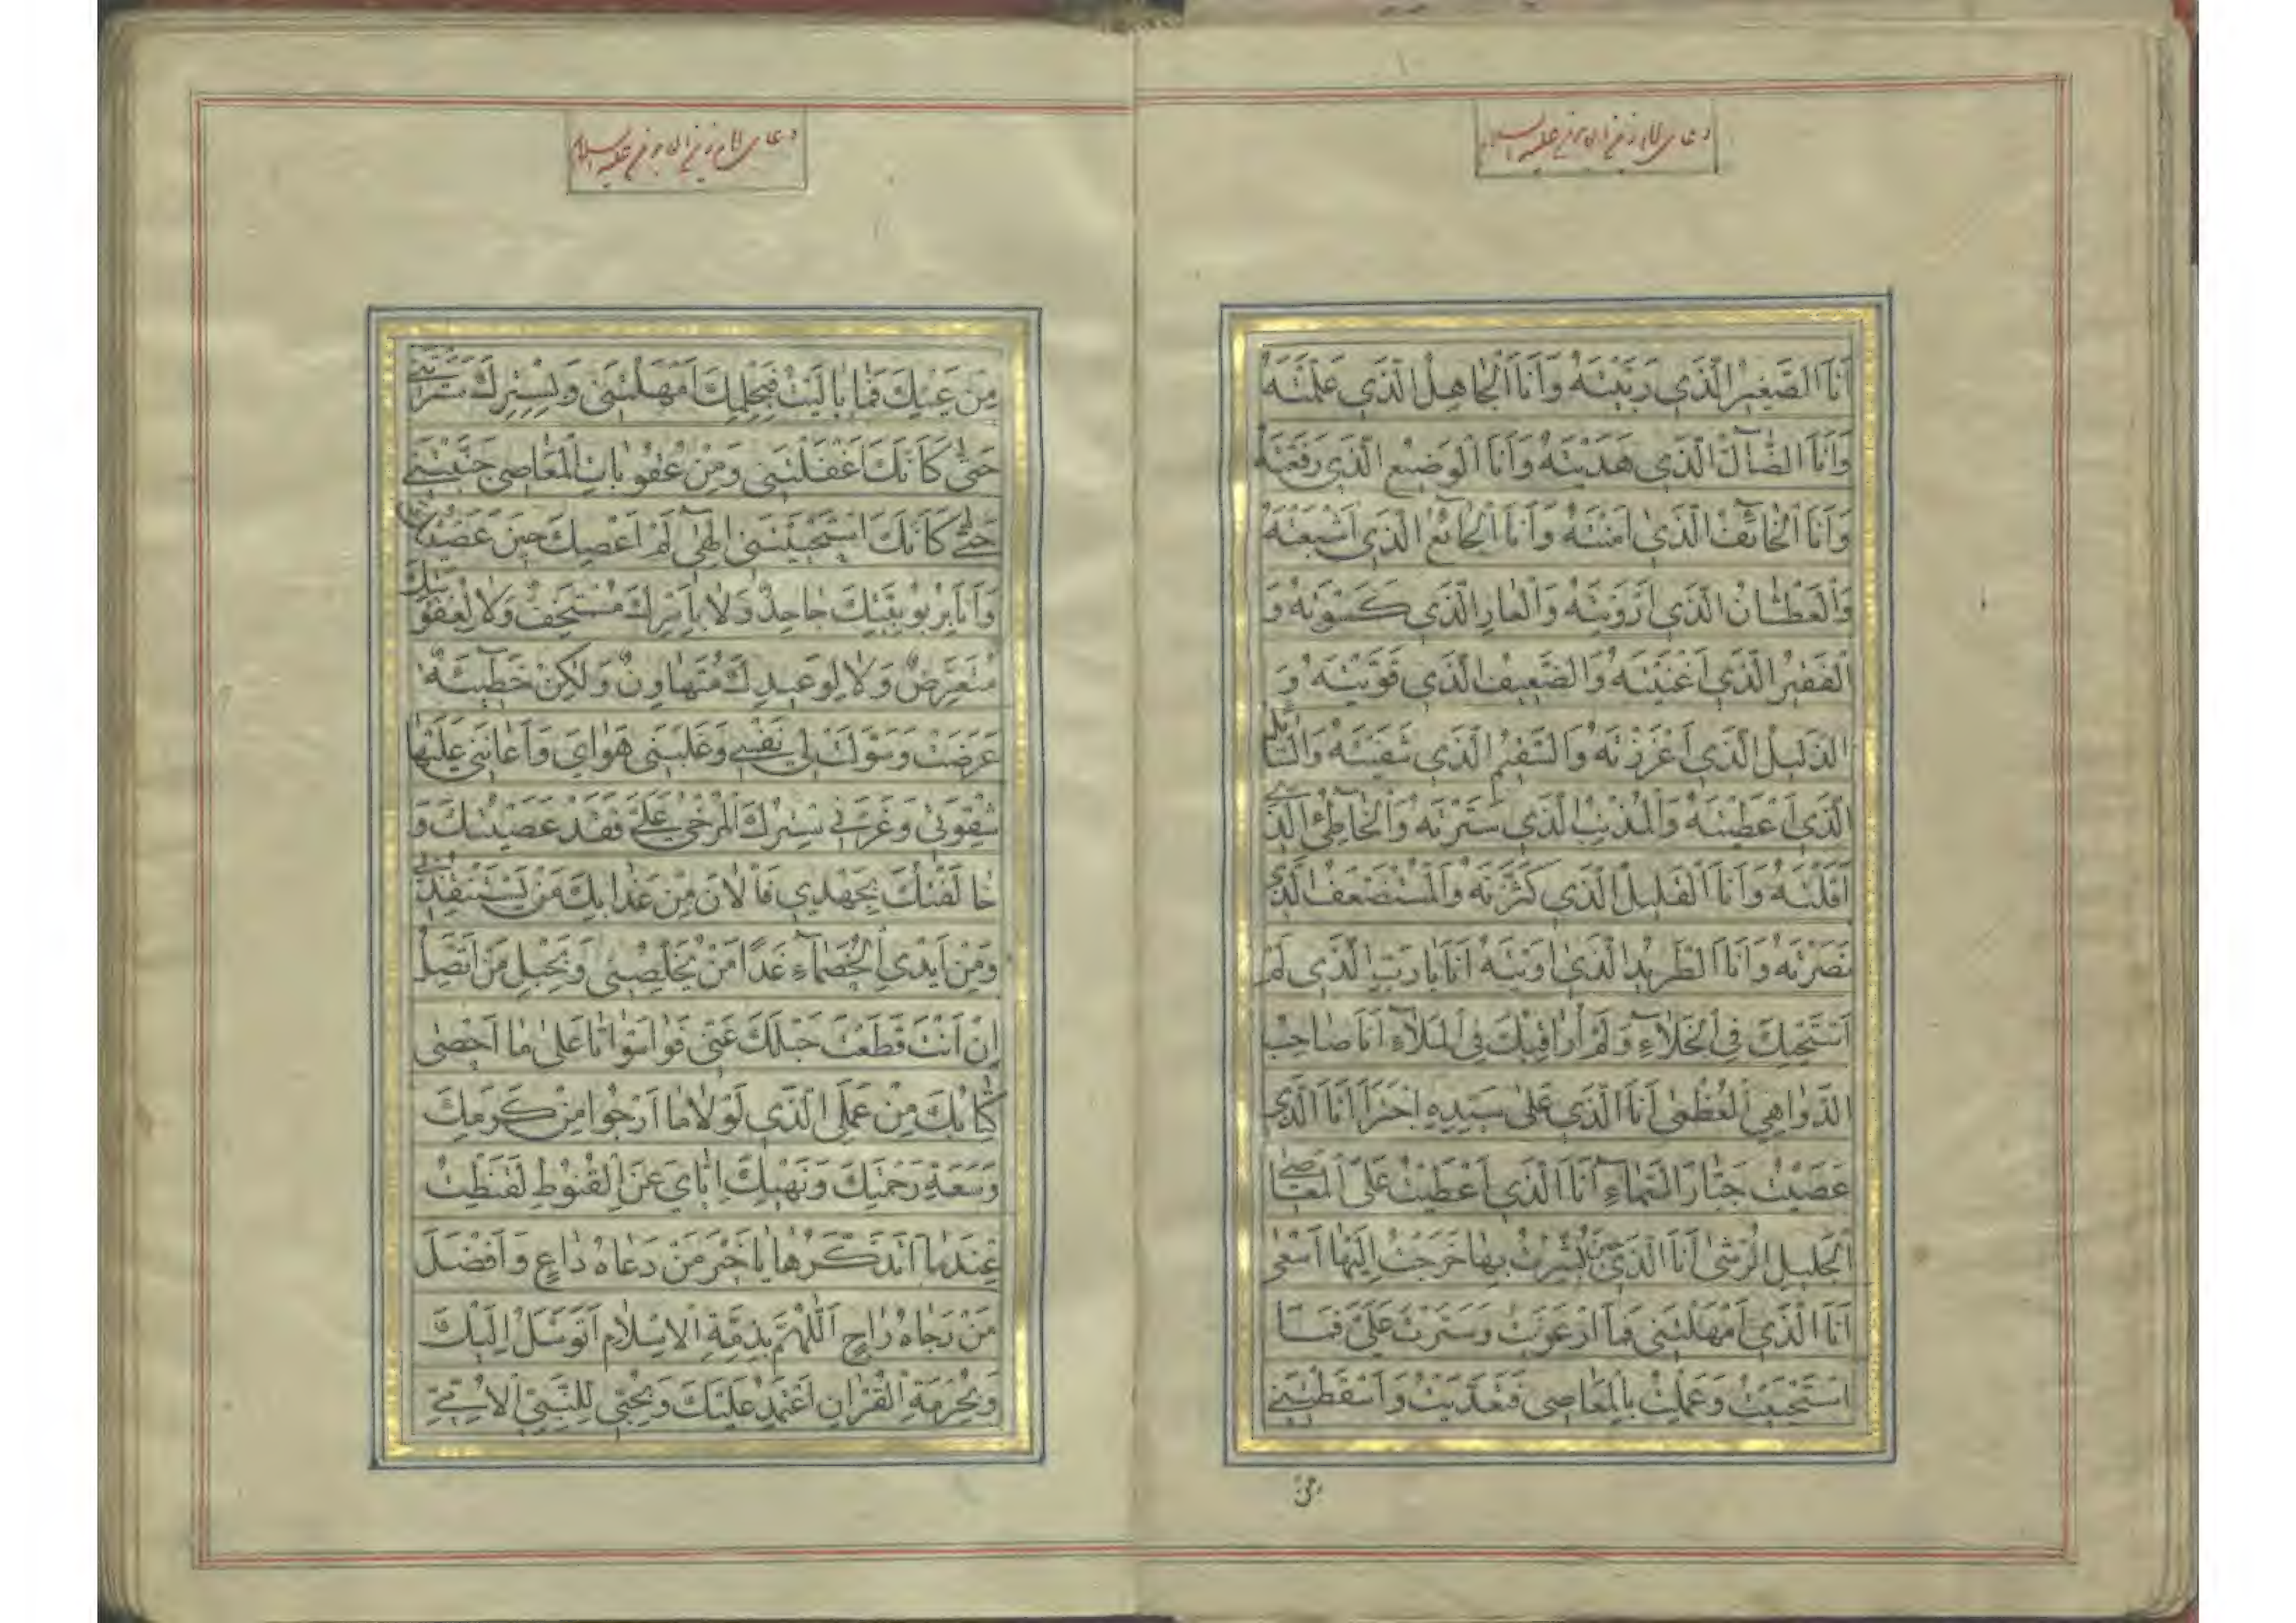 دعای امام زین العابدین علیه السلام
اَنَا الصَّغیرُ الَّذی رَبَّیْتَهُ وَاَنَا الْجاهِلُ الَّذی عَلَّمْتَهُ
وَاَنَا الضّالُّ الَّذی هَدَیْتَهُ وَاَنَا الْوَضیعُ الَّذی رَفَعْتَهُ
وَاَنَا الْخائِفُ الَّذی امَنْتَهُ وَاَنَا الْجائِعُ الَّذی اَشْبَعْتَهُ
وَالْعَطْشانُ الَّذی اَرْوَیْتَهُ وَالْعارِ الَّذی کَسَوْتَهُ وَ
الْفَقیرُ الَّذی اَغْنَیْتَهُ وَالضَّعیفُ الَّذی قَوَّیْتَهُ وَ
الذَّلیلُ الَّذی اَعْزَزْتَهُ وَالسَّقیمُ الَّذی شَفَیْتَهُ وَالسّائِلُ
الَّذی اَعْطَیْتَهُ وَالْمُذْنِبُ الَّذی سَتَرْتَهُ وَالْخاطِئُ الَّذی
اَقَلْتَهُ وَاَنَا الْقَلیلُ الَّذی کَثَّرْتَهُ وَالْمُسْتَضْعَفُ الَّذی
نَصَرْتَهُ وَاَنَا الطَّریدُ الَّذی اوَیْتَهُ اَنَا یا رَبِّ الَّذی لَمْ
اَسْتَحْیِکَ فِی الْخَلآءِ وَلَمْ اُراقِبْکَ فِی الْمَلآءِ اَنَا صاحِبُ
الدَّواهِی الْعُظْمی اَنَا الَّذی عَلی سَیِّدِهِ اجْتَرَا اَنَا الَّذی
عَصَیْتُ جَبّارَ السَّمآءِ اَنَا الَّذی اَعْطَیْتُ عَلَی الْمَعاصِی
الْجَلیلِ الرُّشی اَنَا الَّذی حینَ بُشِّرْتُ بِها خَرَجْتُ اِلَیْها اَسْعی
اَنَا الَّذی اَمْهَلْتَنی فَمَا ارْعَوَیْتُ وَسَتَرْتَ عَلَیَّ فَمَا
اسْتَحْیَیْتُ وَعَمِلْتُ بِالْمَعاصی فَتَعَدَّیْتُ وَاَسْقَطْتَنی
من
دعای امام زین العابدین علیه السلام
مِنْ عَیْنِکَ فَما بالَیْتُ فَبِحِلْمِکَ اَمْهَلْتَنی وَبِسِتْرِکَ سَتَرْتَنی
حَتّی کَاَنَّکَ اَغْفَلْتَنی وَمِنْ عُقُوباتِ الْمَعاصی جَنَّبْتَنی
حَتّی کَاَنَّکَ اسْتَحْیَیْتَنی اِلهی لَمْ اَعْصِکَ حینَ عَصَیْتُکَ
وَاَنَا بِرُبُوبِیَّتِکَ جاحِدٌ وَلا بِاَمْرِکَ مُسْتَخِفٌّ وَلا لِعُقُوبَتِکَ
مُتَعَرِّضٌ وَلا لِوَعیدِکَ مُتَهاوِنٌ وَلکِنْ خَطیئَةٌ
عَرَضَتْ وَسَوَّلَتْ لی نَفْسی وَغَلَبَنی هَوایَ وَاَعانَنی عَلَیْها
شِقْوَتی وَغَرَّنی سِتْرُکَ الْمُرْخی عَلَیَّ فَقَدْ عَصَیْتُکَ وَ
خالَفْتُکَ بِجَهْدی فَالْانَ مِنْ عَذابِکَ مَنْ یَسْتَنْقِذُنی
وَمِنْ اَیْدِی الْخُصَمآءِ غَدًا مَنْ یُخَلِّصُنی وَبِحَبْلِ مَنْ اَتَّصِلُ
اِنْ اَنْتَ قَطَعْتَ حَبْلَکَ عَنّی فَواسَوْاَتا عَلی ما اَحْصی
کِتابُکَ مِنْ عَمَلِی الَّذی لَوْلا ما اَرْجُوا مِنْ کَرَمِکَ
وَسَعَةِ رَحْمَتِکَ وَنَهْیِکَ اِیّایَ عَنِ الْقُنُوطِ لَقَنَطْتُ
عِنْدَما اَتَذَکَّرُها یا خَیْرَ مَنْ دَعاهُ داعٍ وَاَفْضَلَ
مَنْ رَجاهُ راجٍ اَللّهُمَّ بِذِمَّةِ الْاِسْلامِ اَتَوَسَّلُ اِلَیْکَ
وَبِحُرْمَةِ الْقُرْانِ اَعْتَمِدُ عَلَیْکَ وَبِحُبّی لِلنَّبِیِّ الْاُمِّیِّ